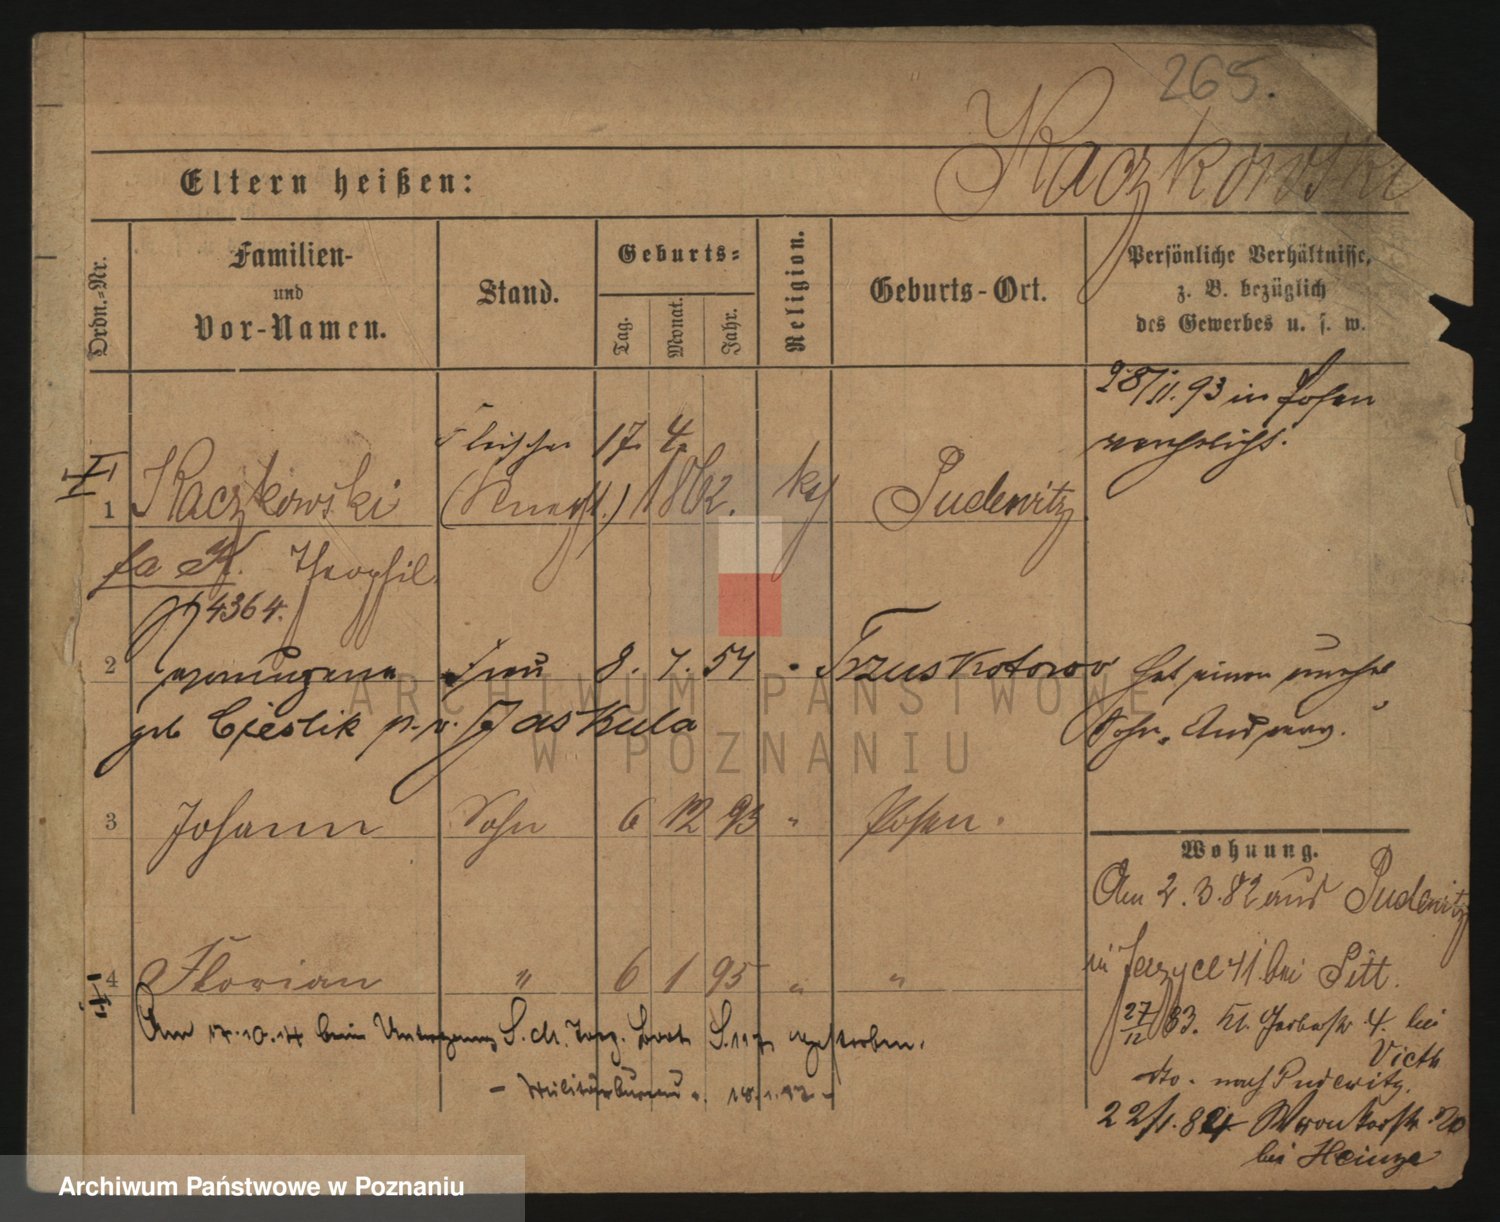 265.
Kaczkowski
Eltern heißen:
Ordn.-Nr.
Familien-
und
Vor-Namen.
Stand.
Geburts-
Tag.
Monat.
Jahr.
Religion.
Geburts-Ort.
Persönliche Verhältnisse,
z. B. bezüglich
des Gewerbes u. s. w.
28/11. 93 in Posen
verehelicht.
Fleischer 17. 4.
1 Kaczkowski (Knecht.) 1862. kth Pudewitz
fa K. Theophil
4364.
2 Frau 8. 7. 57 " Trzuskotowo hat einen unehel
geb Cieslik p. v. Jaskula Sohn, Andreas.
3 Johann Sohn 6 12 93 " Posen.
Wohnung.
Am 2. 3. 82 aus Pudewitz
4 Florian " 6 1 95 " "
in Jerzyce 41 bei Sitt.
Am 17.10.14 beim Untergang S. M. Torp. Boot S.117 gestorben.
27/12 83. Kl. Gerberstr 4. bei
Vieth
- Militärbureau. 18.1.17 -
dto. nach Pudewitz.
22/1. 84 Wronkerstr. 20
bei Heinze
ARCHIWUM PAŃSTWOWE
W POZNANIU
Archiwum Państwowe w Poznaniu